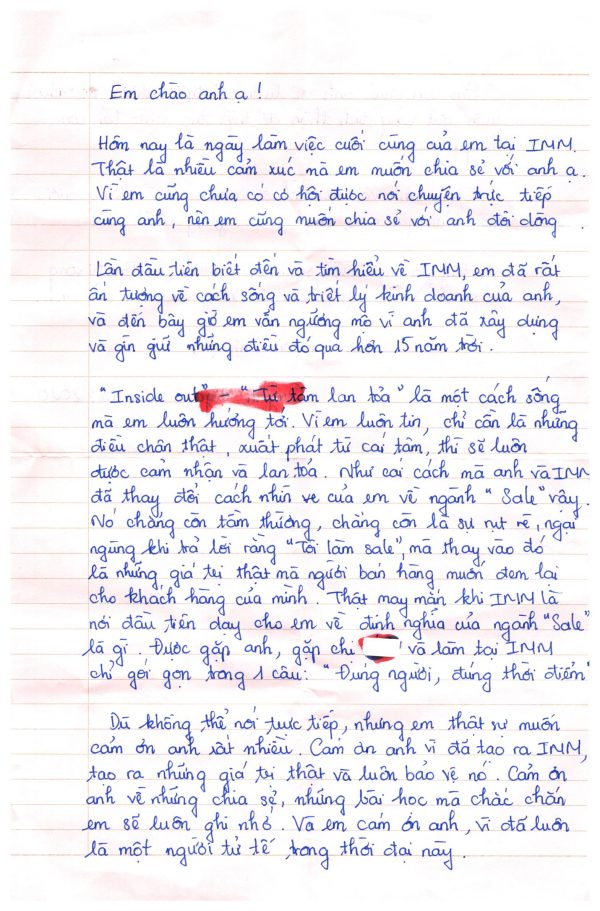 Em chào anh ạ !
Hôm nay là ngày làm việc cuối cùng của em tại IMM.
Thật là nhiều cảm xúc mà em muốn chia sẻ với anh ạ.
Vì em cũng chưa có cơ hội được nói chuyện trực tiếp
cùng anh, nên em cũng muốn chia sẻ với anh đôi dòng.
Lần đầu tiên biết đến và tìm hiểu về IMM, em đã rất
ấn tượng về cách sống và triết lý kinh doanh của anh,
và đến bây giờ em vẫn ngưỡng mộ vì anh đã xây dựng
và gìn giữ những điều đó qua hơn 15 năm trời.
"Inside out" - "Từ tâm lan tỏa" là một cách sống
mà em luôn hướng tới. Vì em luôn tin, chỉ cần là những
điều chân thật, xuất phát từ cái tâm, thì sẽ luôn
được cảm nhận và lan tỏa. Như cái cách mà anh và IMM
đã thay đổi cách nhìn về của em về ngành "Sale" vậy.
Nó chẳng còn tầm thường, chẳng còn là sự rụt rè, ngại
ngùng khi trả lời rằng "Tôi làm sale", mà thay vào đó
là những giá trị thật mà người bán hàng muốn đem lại
cho khách hàng của mình. Thật may mắn khi IMM là
nơi đầu tiên dạy cho em về định nghĩa của ngành "Sale"
là gì. Được gặp anh, gặp chị và làm tại IMM
chỉ gói gọn trong 1 câu: "Đúng người, đúng thời điểm"
Dù không thể nói trực tiếp, nhưng em thật sự muốn
cảm ơn anh rất nhiều. Cảm ơn anh vì đã tạo ra IMM,
tạo ra những giá trị thật và luôn bảo vệ nó. Cảm ơn
anh về những chia sẻ, những bài học mà chắc chắn
em sẽ luôn ghi nhớ. Và em cảm ơn anh, vì đã luôn
là một người tử tế trong thời đại này.